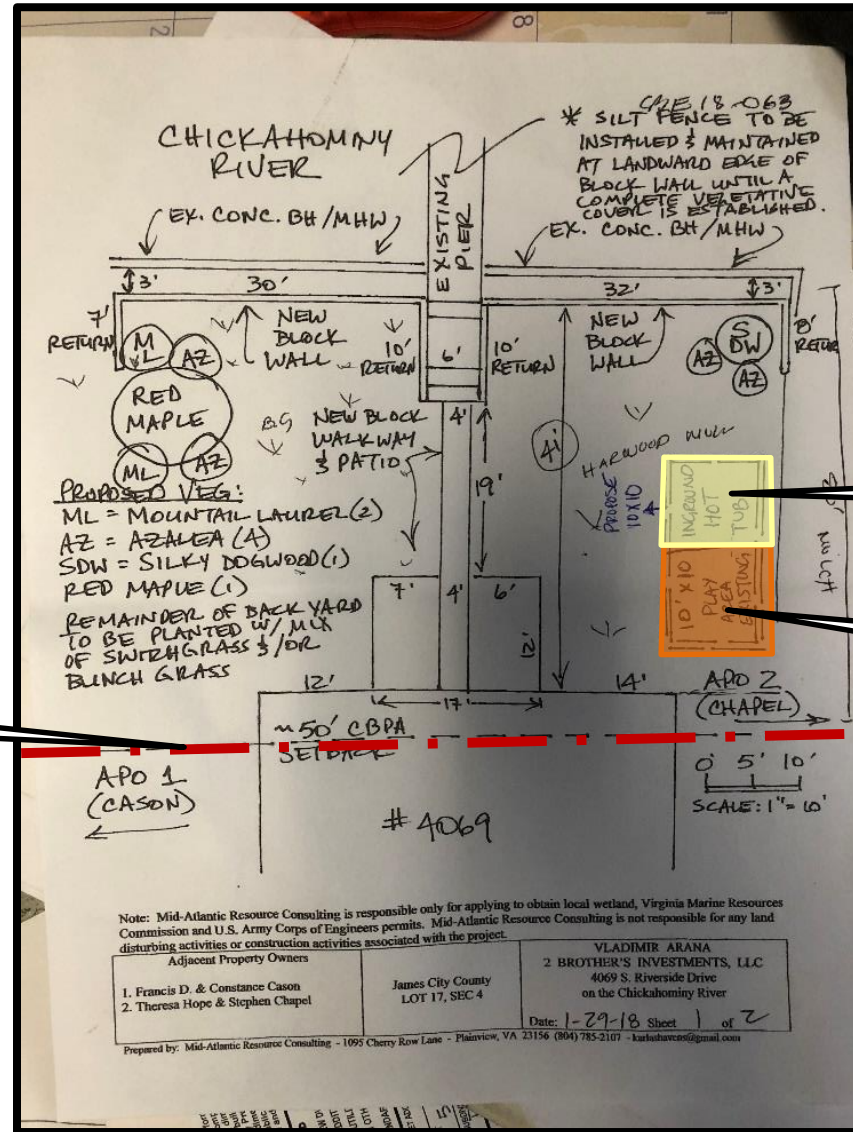 CBE 18-063
CHICKAHOMINY
RIVER
* SILT FENCE TO BE
INSTALLED & MAINTAINED
AT LANDWARD EDGE OF
BLOCK WALL UNTIL A
COMPLETE VEGETATIVE
COVER IS ESTABLISHED.
EX. CONC. BH/MHW
EXISTING
PIER
EX. CONC. BH/MHW
3'
30'
32'
3'
7'
RETURN
ML
AZ
NEW
BLOCK
WALL
10'
RETURN
6'
10'
RETURN
NEW
BLOCK
WALL
SDW
AZ
AZ
8'
RETUR
RED
MAPLE
ML
AZ
NEW BLOCK
WALKWAY
& PATIO
4'
19'
41'
HARWOOD MULC
PROPOSE
10X10
INGROUND
HOT
TUB
10' X10
PLAY
AREA
EXISTING
MULCH
PROPOSED VEG:
ML = MOUNTAIL LAUREL (2)
AZ = AZALEA (4)
SDW = SILKY DOGWOOD (1)
RED MAPLE (1)
REMAINDER OF BACK YARD
TO BE PLANTED W/ MIX
OF SWITHGRASS &/OR
BUNCH GRASS
7'
4'
6'
12'
12'
17'
14'
APO 2
(CHAPEL)
~50' CBPA
SETBACK
APO 1
(CASON)
0' 5' 10'
SCALE: 1"=10'
# 4069
Note: Mid-Atlantic Resource Consulting is responsible only for applying to obtain local wetland, Virginia Marine Resources
Commission and U.S. Army Corps of Engineers permits. Mid-Atlantic Resource Consulting is not responsible for any land
disturbing activities or construction activities associated with the project.
Adjacent Property Owners
1. Francis D. & Constance Cason
2. Theresa Hope & Stephen Chapel
James City County
LOT 17, SEC 4
VLADIMIR ARANA
2 BROTHER'S INVESTMENTS, LLC
4069 S. Riverside Drive
on the Chickahominy River
Date: 1-29-18 Sheet 1 of 2
Prepared by: Mid-Atlantic Resource Consulting - 1095 Cherry Row Lane - Plainview, VA 23156 (804) 785-2107 - karlashavens@gmail.com